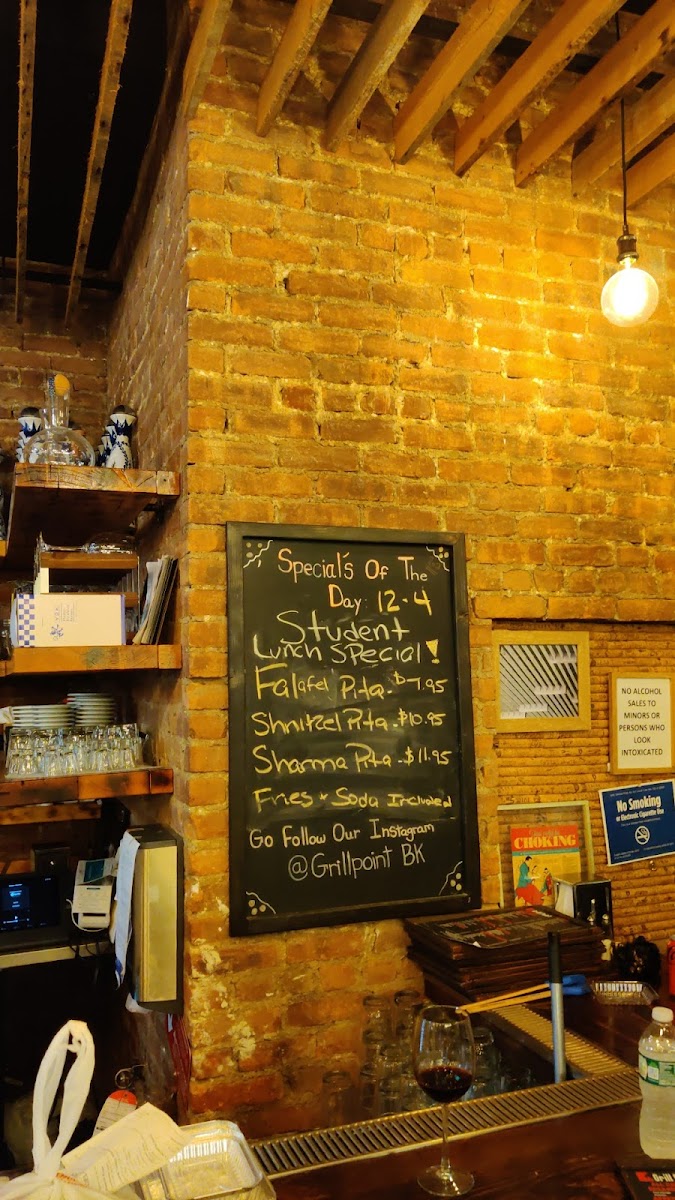 Special's Of The
Day: 12-4
Student
Lunch Special!
Falafel Pita - $7.95
Shnitzel Pita - $10.95
Sharma Pita - $11.95
Fries & Soda Included
Go Follow Our Instagram
@Grillpoint BK
NO ALCOHOL
SALES TO
MINORS OR
PERSONS WHO
LOOK
INTOXICATED
No Smoking
or Electronic Cigarette Use
CHOKING